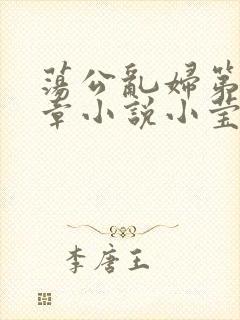 蕩公亂婦第
章小說小莹
李唐王